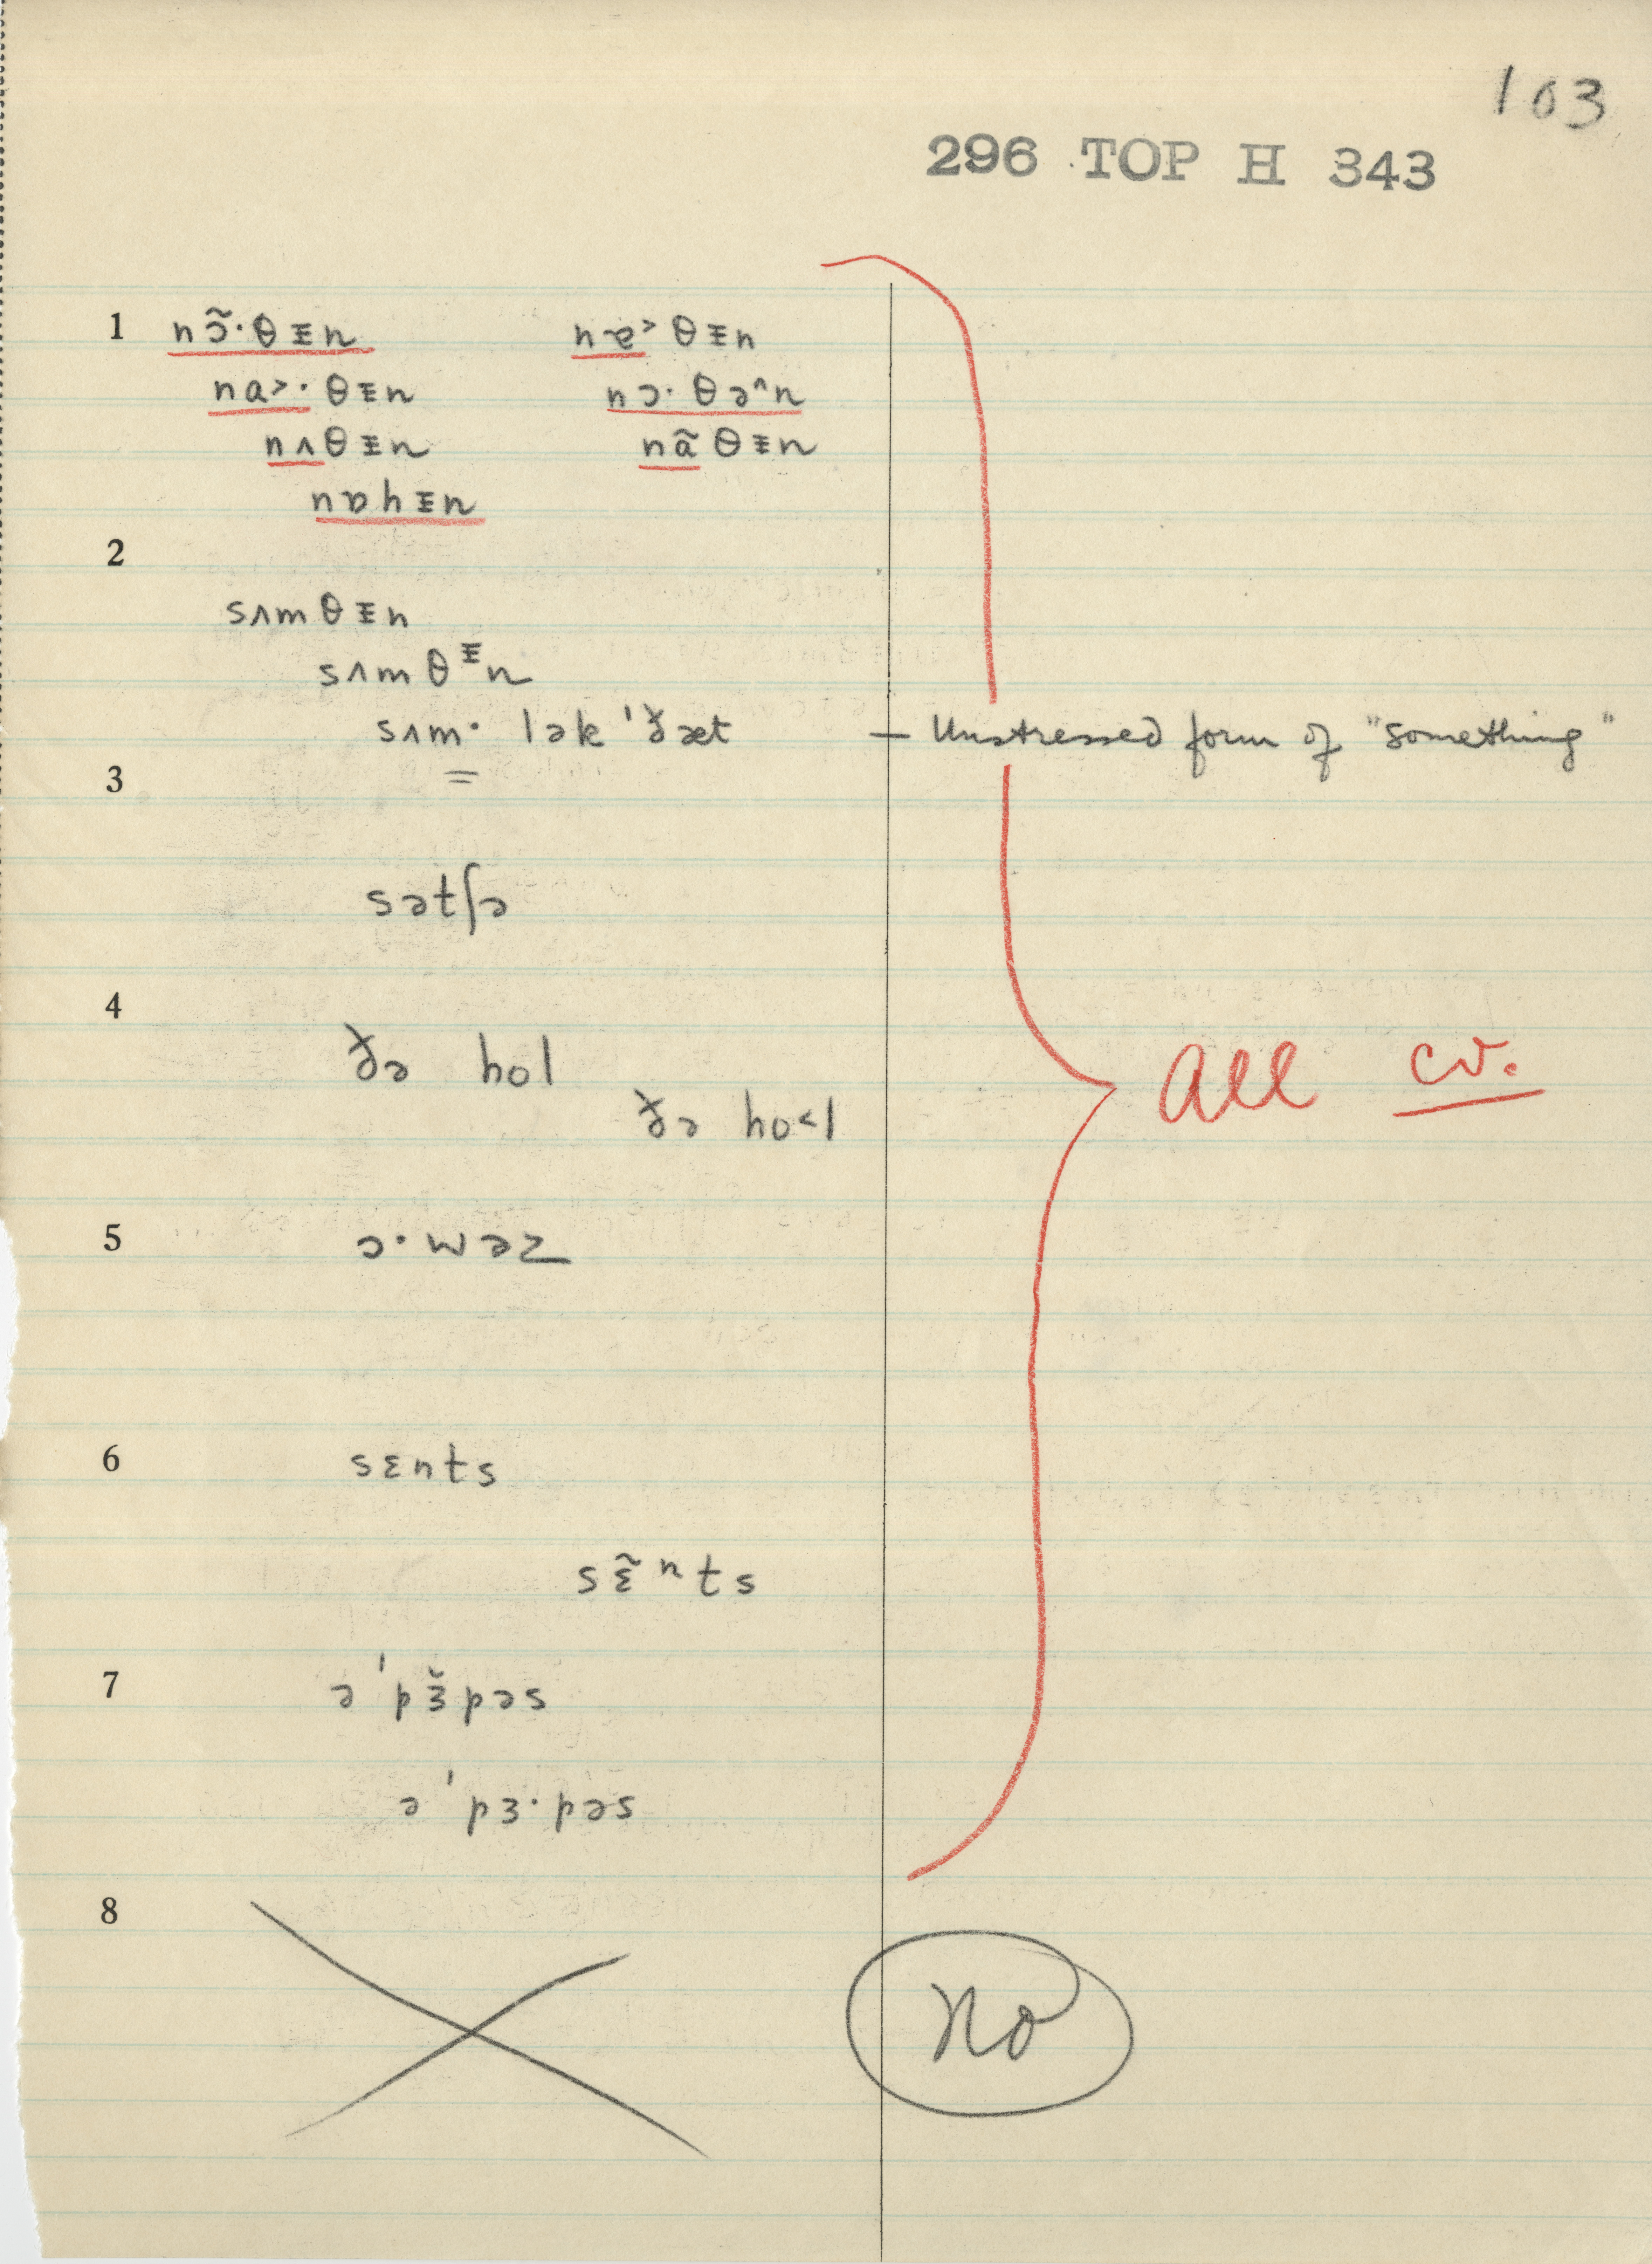 103
296 TOP H 343
1 nɔ̃·θᵻn nɐ˃θᵻn
na˃·θᵻn nɔ·θə^n
nʌθᵻn nãθᵻn
nɒhᵻn
2
sʌmθᵻn
sʌmθᵻn
sʌm· lək ˈðæt — Unstressed form of "something"
3
sətʃə
4
ðə hol
All cv.
ðə ho˂l
5 ɔ·wəz
6 sɛnts
sɛ̃ⁿts
7 əˈpɜ̆pəs
əˈpɜ·pəs
8
No